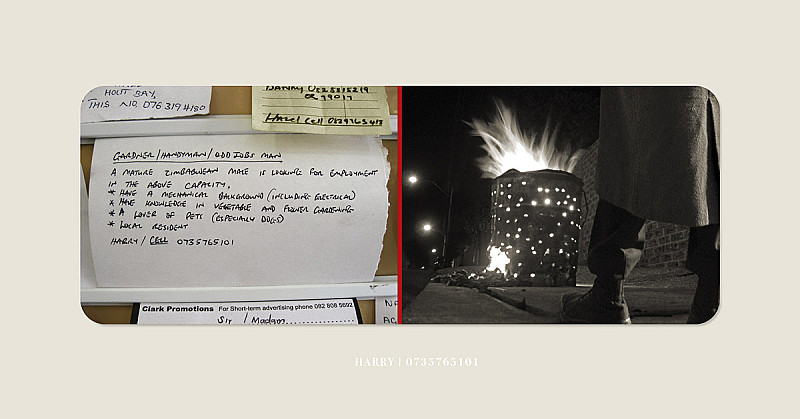 HOUT BAY,
THIS NO. 076 319 4180
DANNY 0725815219
OR 99017
Hazel Cell 0829765413
GARDNER/HANDYMAN/ODD JOBS MAN
A MATURE ZIMBABWEAN MALE IS LOOKING FOR EMPLOYMENT
IN THE ABOVE CAPACITY.
* HAVE A MECHANICAL BACKGROUND (INCLUDING ELECTRICAL)
* HAVE KNOWLEDGE IN VEGETABLE AND FLOWER GARDENING
* A LOVER OF PETS (ESPECIALLY DOGS)
* LOCAL RESIDENT
HARRY/CELL 0735765101
Clark Promotions For Short-term advertising phone 082 808 5692
Sir / Madam
HARRY | 0735765101